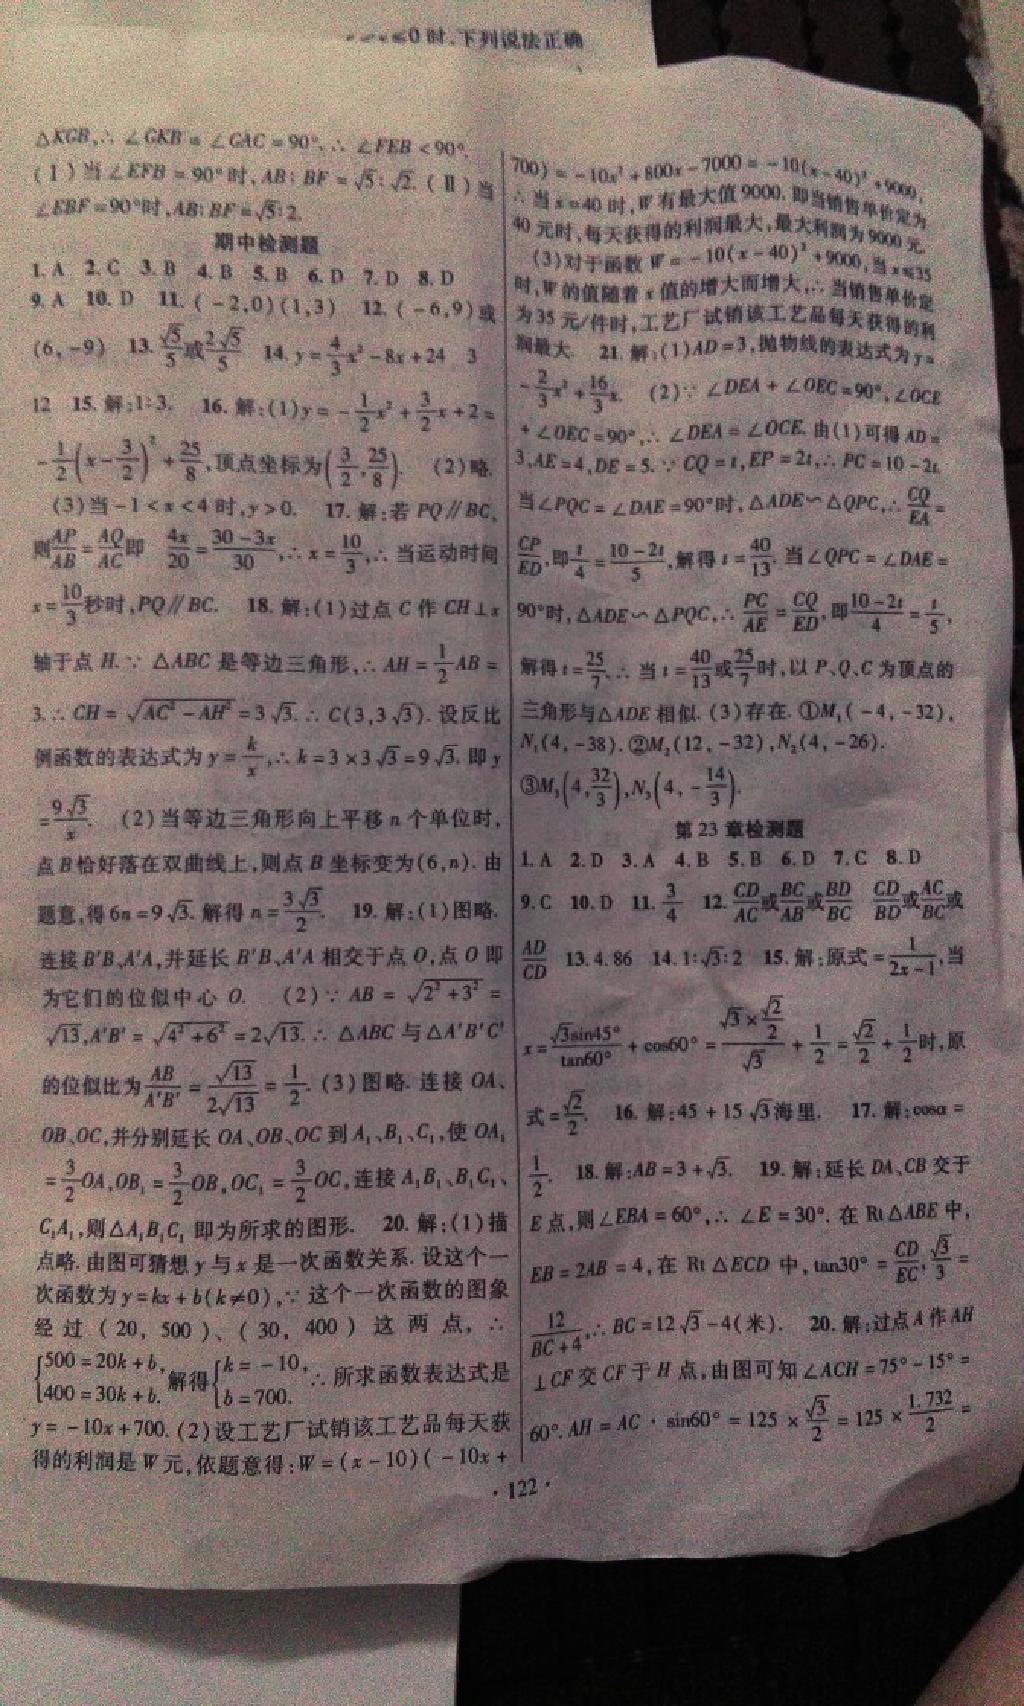 ≤0时,下列说法正确
△KGB,∴∠GKB=∠GAC=90°,∴∠FEB<90°.
(Ⅰ)当∠EFB=90°时,AB:BF=√5:√2.(Ⅱ)当
∠EBF=90°时,AB:BF=√5:2.
期中检测题
1.A 2.C 3.B 4.B 5.B 6.D 7.D 8.D
9.A 10.D 11.(-2,0)(1,3) 12.(-6,9)或
(6,-9) 13.√5/5或2√5/5 14.y=4/3x²-8x+24 3
12 15.解:1:3. 16.解:(1)y=-1/2x²+3/2x+2=
-1/2(x-3/2)²+25/8,顶点坐标为(3/2,25/8). (2)略.
(3)当-1<x<4时,y>0. 17.解:若PQ∥BC,
则AP/AB=AQ/AC,即 4x/20=(30-3x)/30,∴x=10/3,∴当运动时间
x=10/3秒时,PQ∥BC. 18.解:(1)过点C作CH⊥x
轴于点H.∵△ABC是等边三角形,∴AH=1/2AB=
3.∴CH=√(AC²-AH²)=3√3.∴C(3,3√3).设反比
例函数的表达式为y=k/x,∴k=3×3√3=9√3.即y
=9√3/x. (2)当等边三角形向上平移n个单位时,
点B恰好落在双曲线上,则点B坐标变为(6,n).由
题意,得6n=9√3.解得n=3√3/2. 19.解:(1)图略.
连接B'B、A'A,并延长B'B、A'A相交于点O,点O即
为它们的位似中心O. (2)∵AB=√(2²+3²)=
√13,A'B'=√(4²+6²)=2√13.∴△ABC与△A'B'C'
的位似比为AB/A'B'=√13/2√13=1/2.(3)图略.连接OA、
OB、OC,并分别延长OA、OB、OC到A₁、B₁、C₁,使OA₁
=3/2OA,OB₁=3/2OB,OC₁=3/2OC,连接A₁B₁、B₁C₁、
C₁A₁,则△A₁B₁C₁即为所求的图形. 20.解:(1)描
点略.由图可猜想y与x是一次函数关系.设这个一
次函数为y=kx+b(k≠0),∵这个一次函数的图象
经过(20,500)、(30,400)这两点,∴
{500=20k+b, 400=30k+b.解得{k=-10, b=700.∴所求函数表达式是
y=-10x+700.(2)设工艺厂试销该工艺品每天获
得的利润是W元,依题意得:W=(x-10)(-10x+
700)=-10x²+800x-7000=-10(x-40)²+9000,
∴当x=40时,W有最大值9000.即当销售单价定为
40元时,每天获得的利润最大,最大利润为9000元.
(3)对于函数W=-10(x-40)²+9000,当x≤35
时,W的值随着x值的增大而增大,∴当销售单价定
为35元/件时,工艺厂试销该工艺品每天获得的利
润最大. 21.解:(1)AD=3,抛物线的表达式为y=
-2/3x²+16/3x. (2)∵∠DEA+∠OEC=90°,∠OCE
+∠OEC=90°,∴∠DEA=∠OCE.由(1)可得AD=
3,AE=4,DE=5.∵CQ=t,EP=2t,∴PC=10-2t.
当∠PQC=∠DAE=90°时,△ADE∽△QPC,∴CQ/EA=
CP/ED,即t/4=(10-2t)/5,解得t=40/13.当∠QPC=∠DAE=
90°时,△ADE∽△PQC,∴PC/AE=CQ/ED,即(10-2t)/4=t/5,
解得t=25/7.∴当t=40/13或25/7时,以P、Q、C为顶点的
三角形与△ADE相似.(3)存在.①M₁(-4,-32),
N₁(4,-38).②M₂(12,-32),N₂(4,-26).
③M₃(4,32/3),N₃(4,-14/3).
第23章检测题
1.A 2.D 3.A 4.B 5.B 6.D 7.C 8.D
9.C 10.D 11.3/4 12.CD/AC或BC/AB或BD/BC CD/BD或AC/BC或
AD/CD 13.4.86 14.1:√3:2 15.解:原式=1/(2x-1),当
x=√3sin45°/tan60°+cos60°=(√3×√2/2)/√3+1/2=√2/2+1/2时,原
式=√2/2. 16.解:45+15√3海里. 17.解:cosα=
1/2. 18.解:AB=3+√3. 19.解:延长DA、CB交于
E点,则∠EBA=60°,∴∠E=30°.在Rt△ABE中,
EB=2AB=4,在Rt△ECD中,tan30°=CD/EC,√3/3=
12/(BC+4),∴BC=12√3-4(米). 20.解:过点A作AH
⊥CF交CF于H点,由图可知∠ACH=75°-15°=
60°.AH=AC·sin60°=125×√3/2=125×1.732/2=
·122·